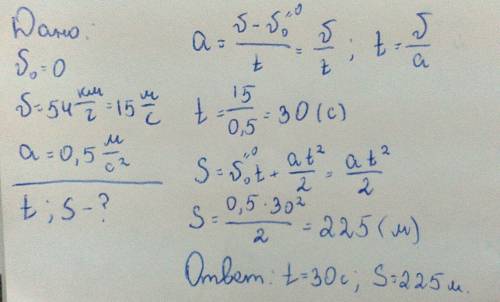 Дано:
υ₀=0
υ=54 км/г=15 м/с
a=0,5 м/с²
t; S-?
a = (υ-υ₀⁼⁰)/t = υ/t; t=υ/a
t= 15/0,5 =30 (с)
S=υ₀⁼⁰t+ at²/2 = at²/2
S= 0,5·30²/2 =225(м)
Ответ: t=30с; S=225м.